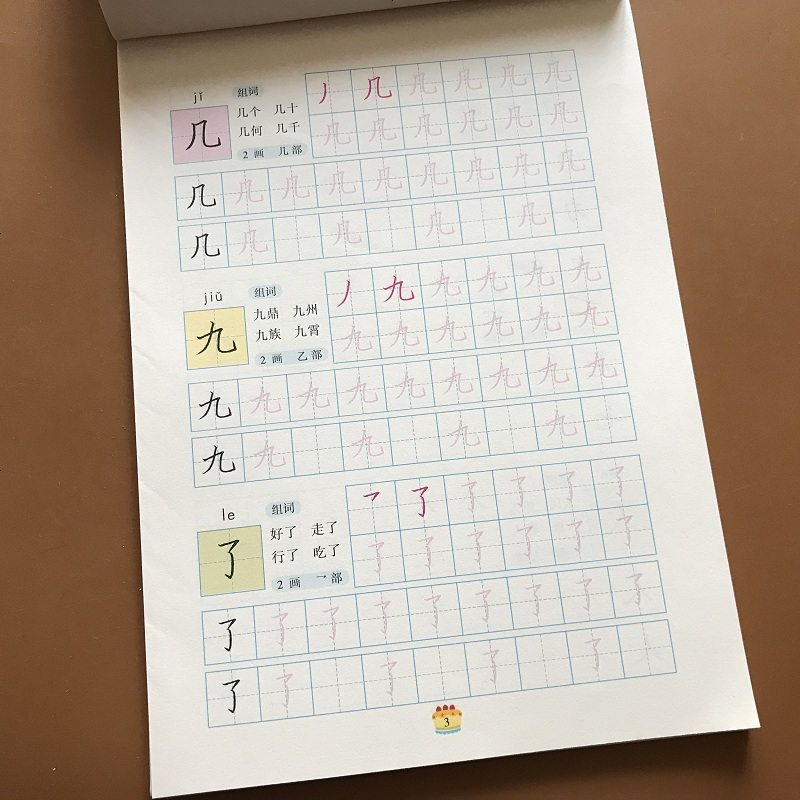 jǐ
组词
几
几个 几十
几何 几千
2 画 几部
丿 几 几 几 几 几
几 几 几 几 几 几
几 几 几 几 几 几 几 几 几
几 几 几 几 几
jiǔ
组词
九
九鼎 九州
九族 九霄
2 画 乙部
丿 九 九 九 九 九
九 九 九 九 九 九
九 九 九 九 九 九 九 九 九
九 九 九 九 九
le
组词
了
好了 走了
行了 吃了
2 画 乛部
乛 了 了 了 了 了
了 了 了 了 了 了
了 了 了 了 了 了 了 了 了
了 了 了 了 了
3